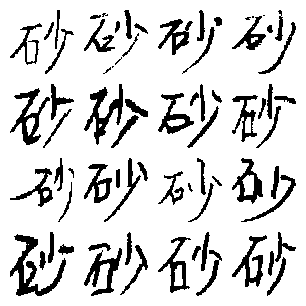 砂砂砂砂
砂砂砂砂
砂砂砂砂
砂砂砂砂